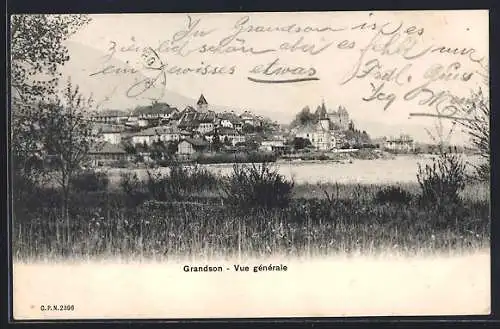 In Grandson ist es
ziemlich schön aber es fehlt mir
ein gewisses etwas
Frdl. Gruss
Grandson - Vue générale
C.P.N. 2306